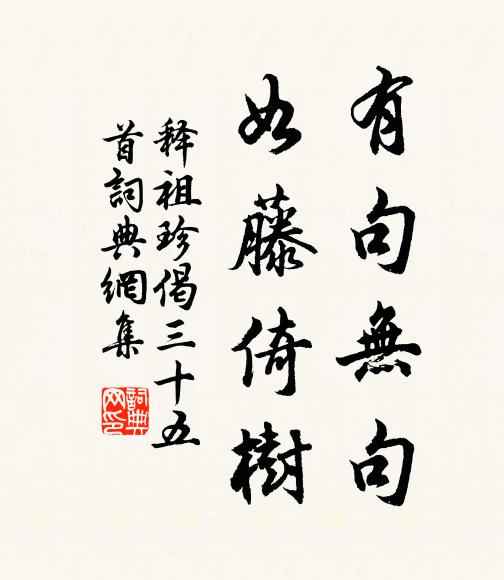 有句無句
如藤倚樹
釋祖珍偈三十五
首詞典網集
詞典
网印